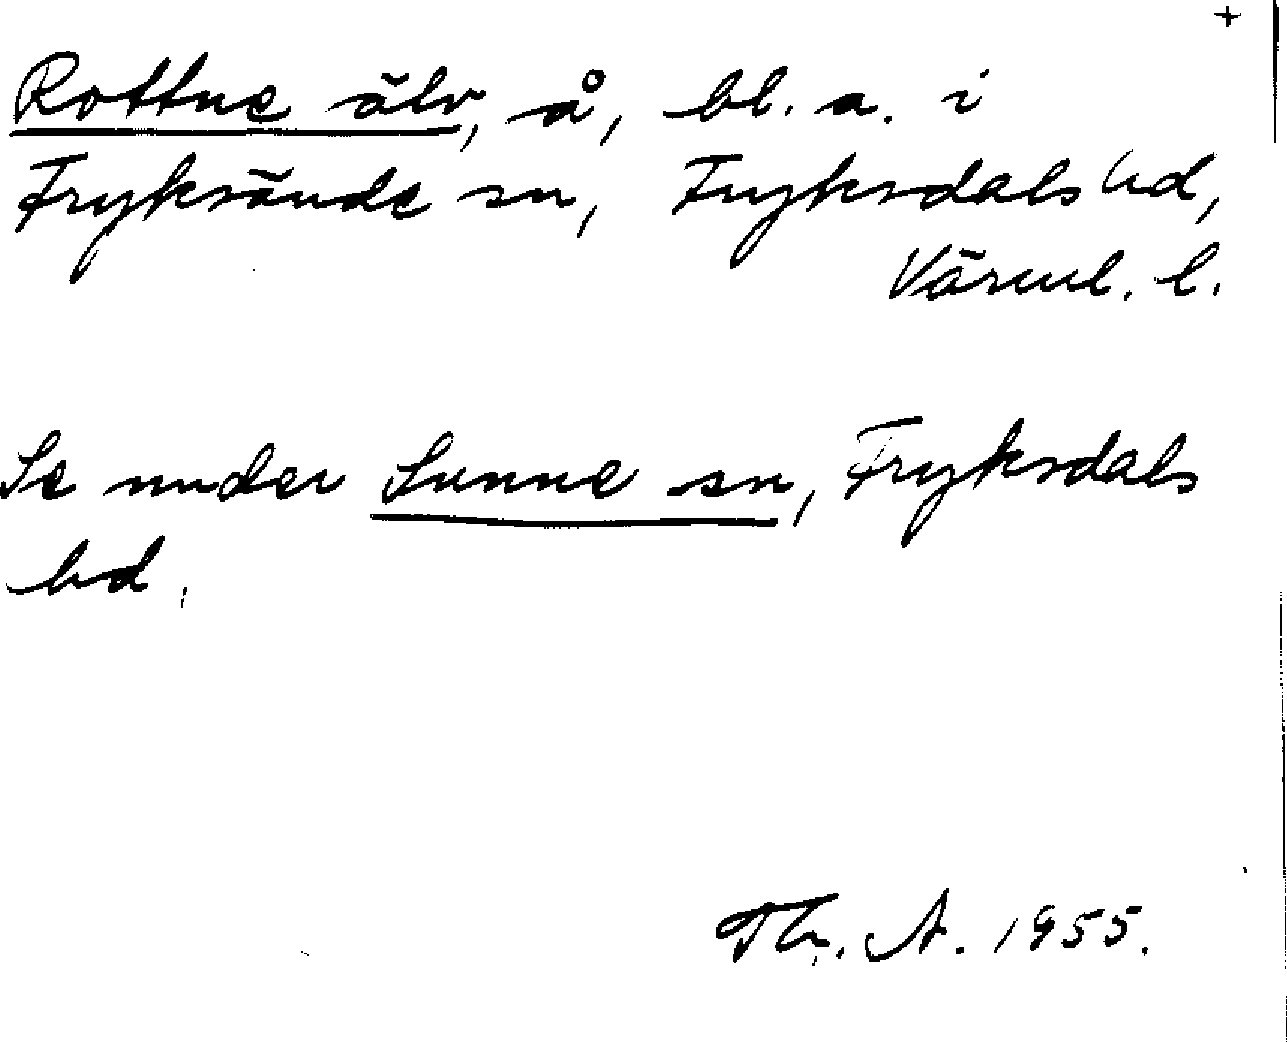 +
Rottne älv, å, bl. a. i
Fryksände sn, Fryksdals hd,
Värml. l.
Se under Sunne sn, Fryksdals
hd.
Th. A. 1955.